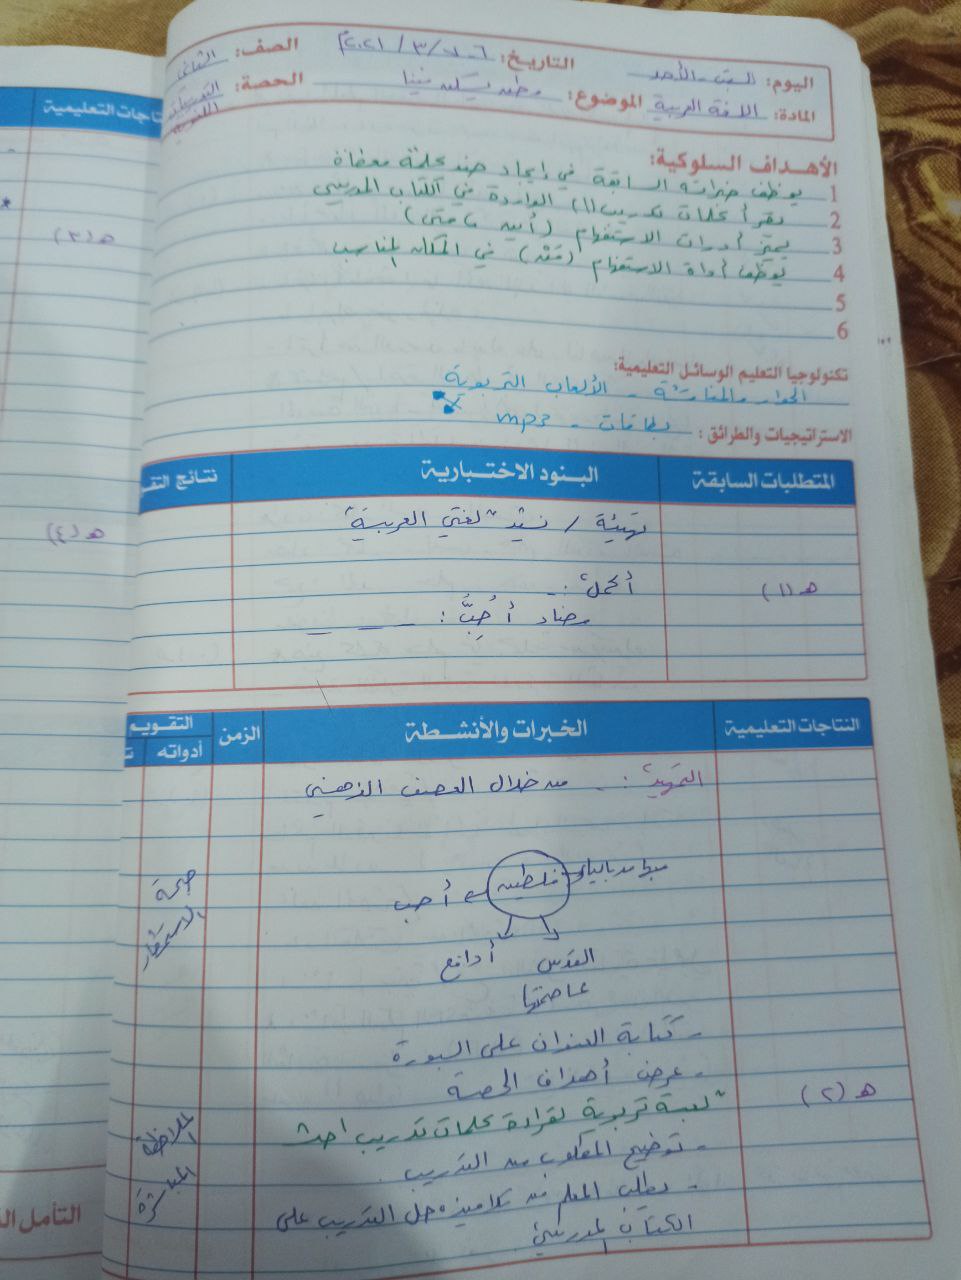 اليوم: السبت - الأحد التاريخ: ٦ - ٧ / ٣ / ٢٠٢١م الصف: الثاني
المادة: اللغة العربية الموضوع: وطن يسكن فينا الحصة: التدريبات اللغوية
الأهداف السلوكية:
1 يوظف خبراته السابقة في إيجاد ضد كلمة معطاة
2 يقرأ كلمات تدريب (١) الواردة في الكتاب المدرسي
3 يميز أدوات الاستفهام (أين ، متى)
4 يوظف أداة الاستفهام (مَنْ) في المكان المناسب
5
6
تكنولوجيا التعليم الوسائل التعليمية:
الحوار والمناقشة - الألعاب التربوية
الاستراتيجيات والطرائق: بطاقات - mp3
المتطلبات السابقة البنود الاختبارية نتائج التقو
تهيئة / نشيد "لغتي العربية"
هـ (١) أكمل :-
مضاد أُحِبُّ : ــ ــ ــ
النتاجات التعليمية الخبرات والأنشطة الزمن التقويم
أدواته
التمهيد :- من خلال العصف الذهني
فلسطين
أحب
القدس أدافع
عاصمتها
صحة الاستمطار
- كتابة العنوان على السبورة
- عرض أهداف الحصة
هـ (٢) * لعبة تربوية لقراءة كلمات تدريب
- توضيح المطلوب من التدريب .
- يطلب المعلم من تلاميذه حل التدريب على
الكتاب المدرسي
الملاحظة
المباشرة
تاجات التعليمية
هـ (٣)
هـ (٤)
التأمل الذ